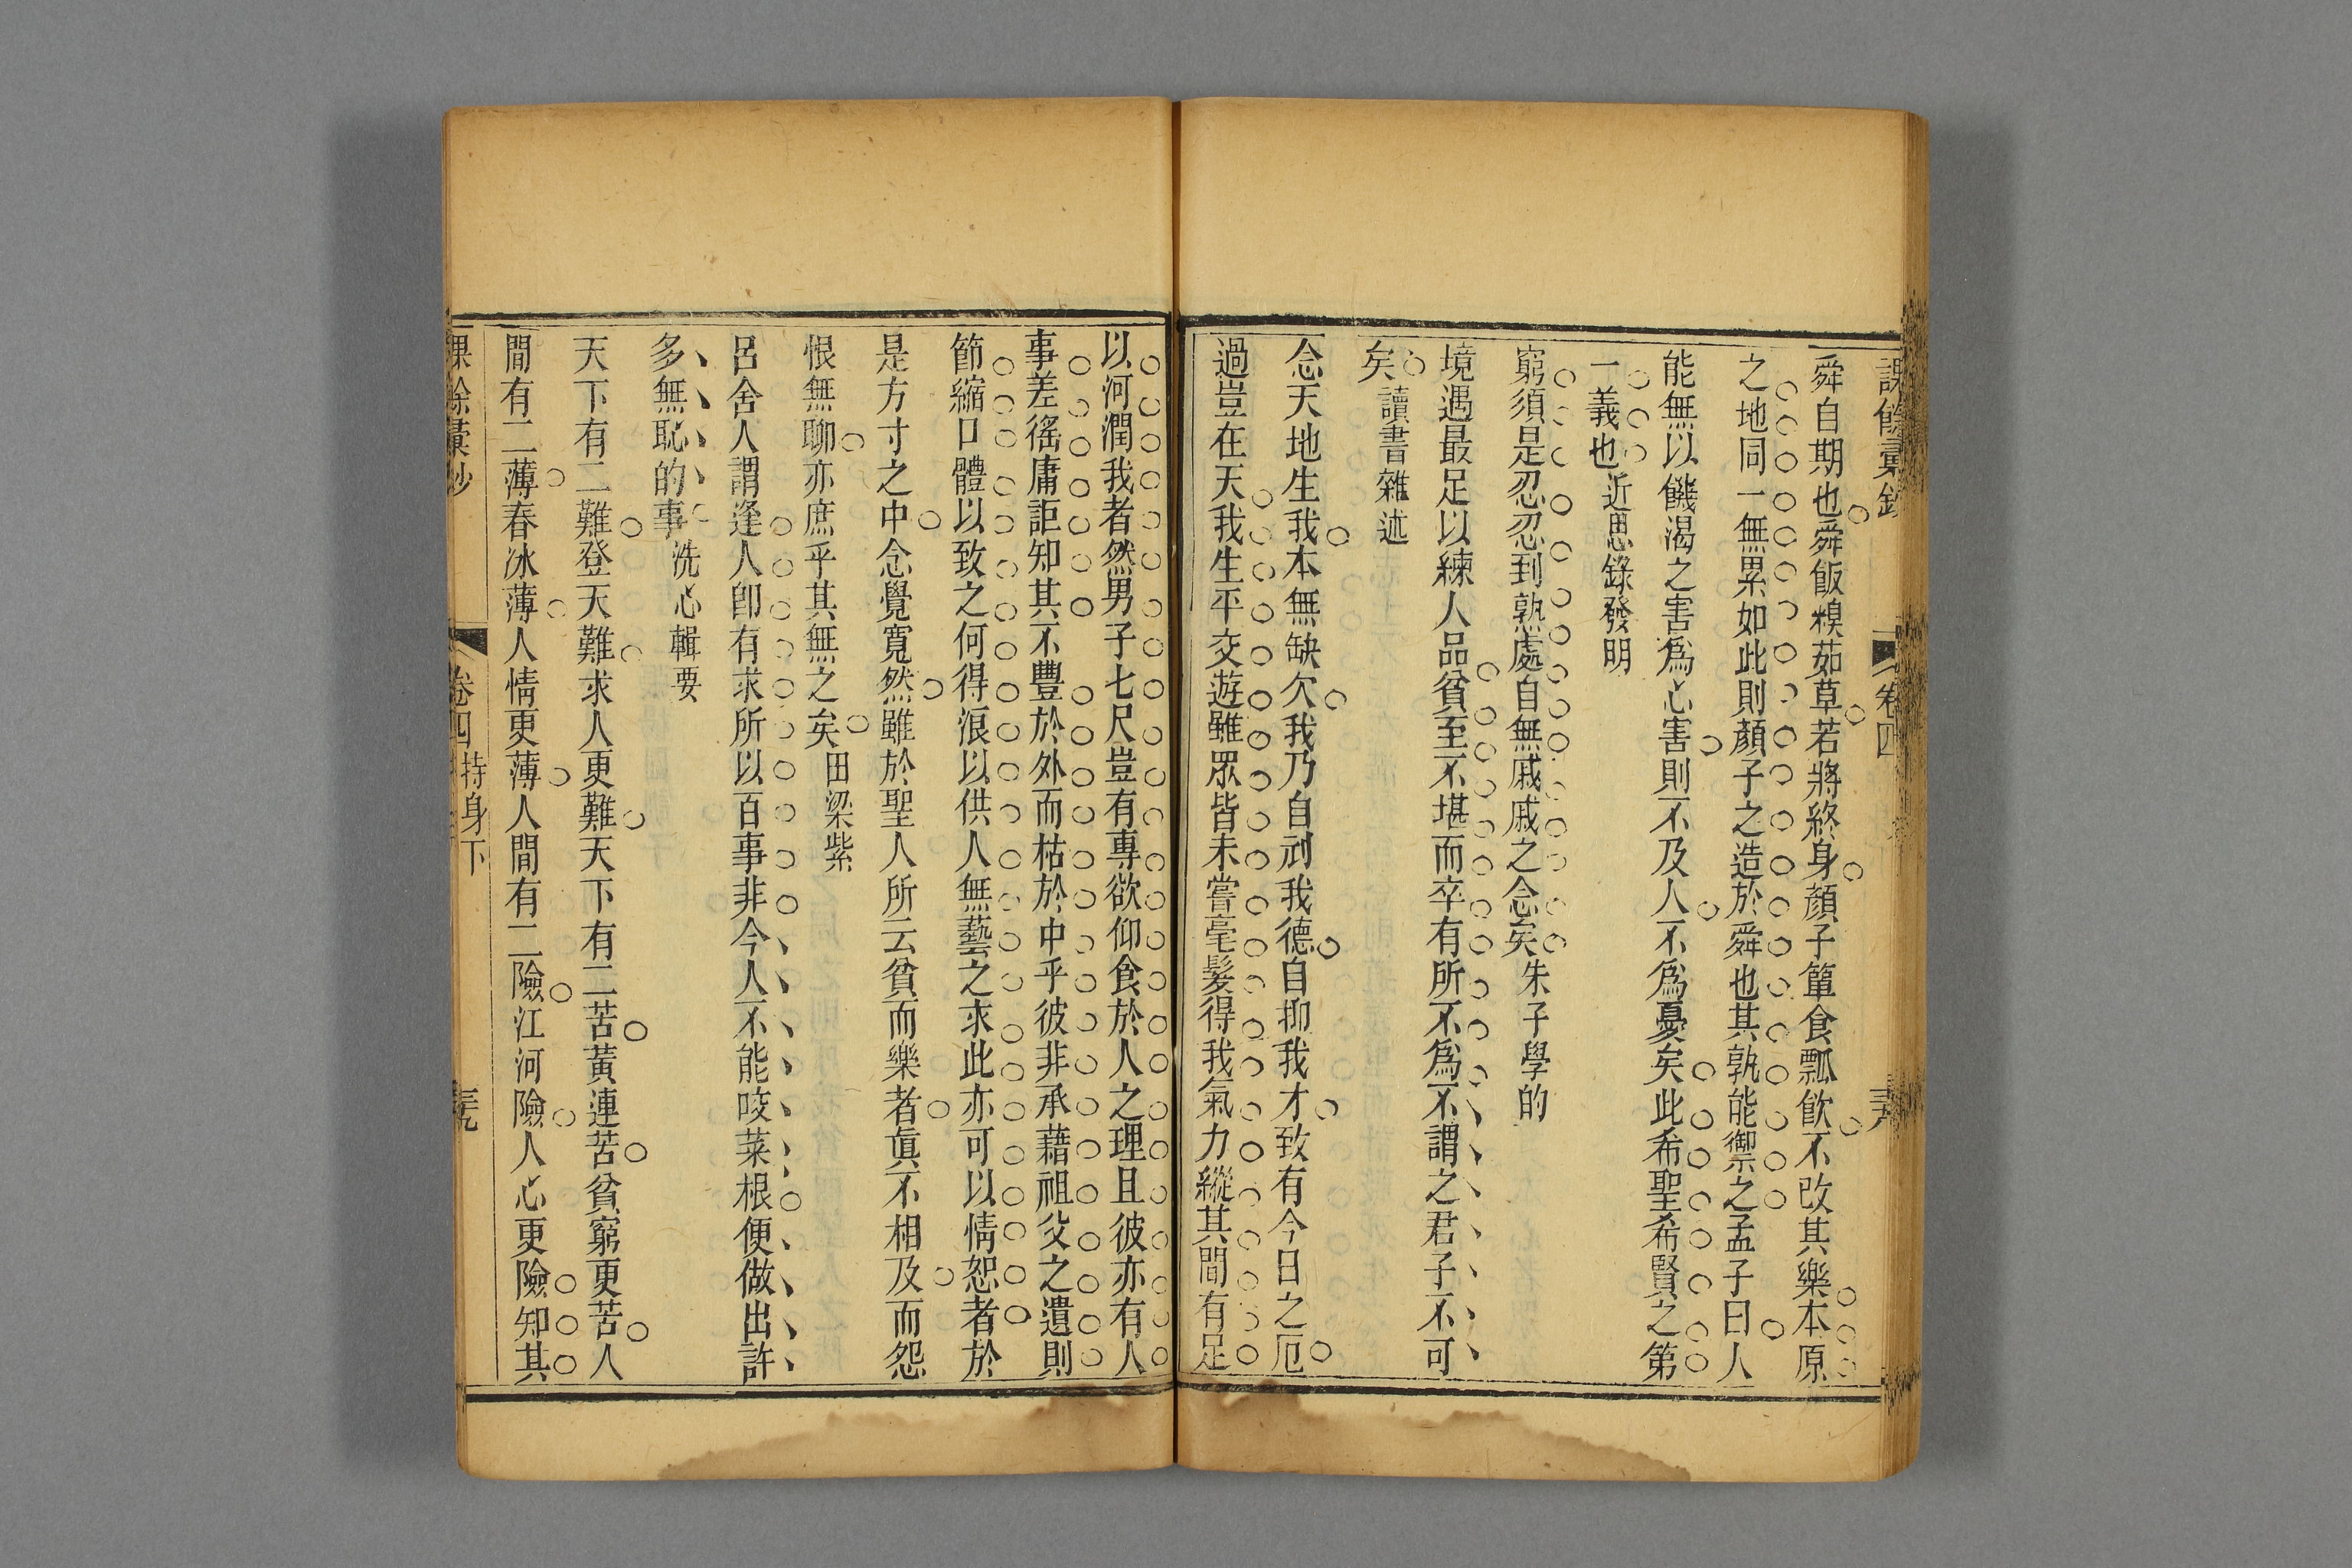 課餘彙鈔 卷四
舜自期也舜飯糗茹草若將終身顏子簞食瓢飲不改其樂本原
之地同一無累如此則顏子之造於舜也其孰能禦之孟子曰人
能無以饑渴之害爲心害則不及人不爲憂矣此希聖希賢之第
一義也近思錄發明
窮須是忍忍到熟處自無戚戚之念矣朱子學的
境遇最足以練人品貧至不堪而卒有所不爲不謂之君子不可
矣讀書雜述
念天地生我本無缺欠我乃自剂我德自抑我才致有今日之厄
過豈在天我生平交遊雖眾皆未嘗毫髮得我氣力縱其間有足
以河潤我者然男子七尺豈有專欲仰食於人之理且彼亦有人
事差徭庸詎知其不豐於外而枯於中乎彼非承藉祖父之遺則
節縮口體以致之何得浪以供人無藝之求此亦可以情恕者於
是方寸之中念覺寬然雖於聖人所云貧而樂者眞不相及而怨
恨無聊亦庶乎其無之矣田梁紫
呂舍人謂逢人卽有求所以百事非今人不能咬菜根便做出許
多無恥的事洗心輯要
天下有二難登天難求人更難天下有二苦黃連苦貧窮更苦人
間有二薄春冰薄人情更薄人間有二險江河險人心更險知其
課餘彙鈔 卷四 持身下